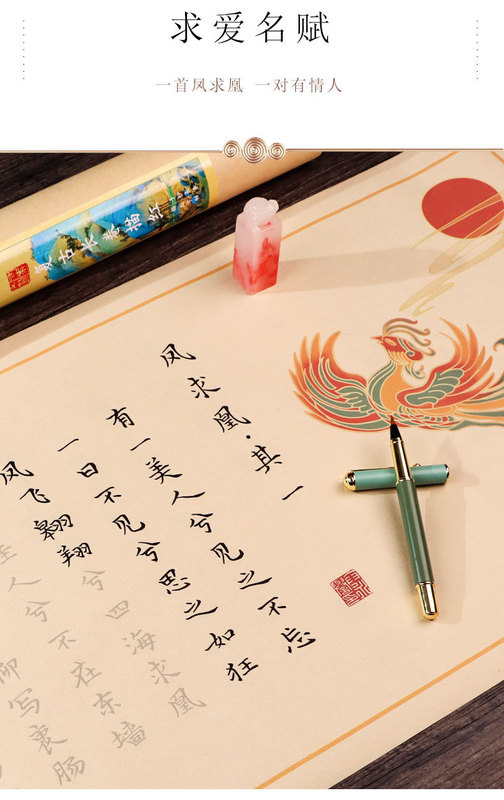 求爱名赋
一首凤求凰 一对有情人
复古长卷描红
凤求凰·其一
有一美人兮见之不忘
一日不见兮思之如狂
凤飞翱翔兮四海求凰
佳人兮不在东墙
聊写衷肠